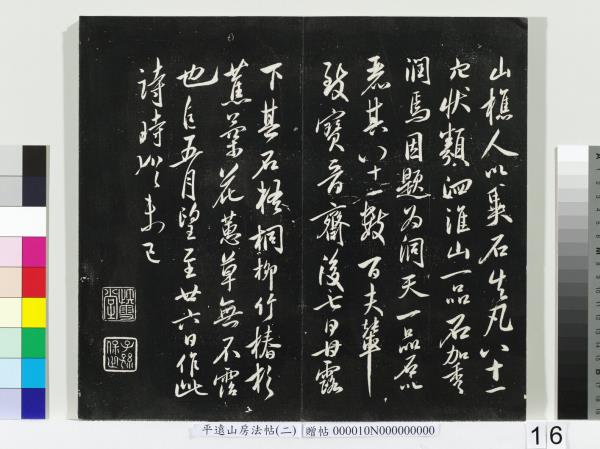 山樵人以異石告凡八十一
穴狀類泗淮山一品石加秀
潤焉因題為洞天一品石以
丑其八十一數百夫輦
致寶晉齋後七日甘露
下其石梧桐柳竹椿杉
蕉葉花蕙草無不霑
也自五月望至廿六日作此
詩時猶未已
平遠山房法帖(二)
贈帖 000010N000000000
16